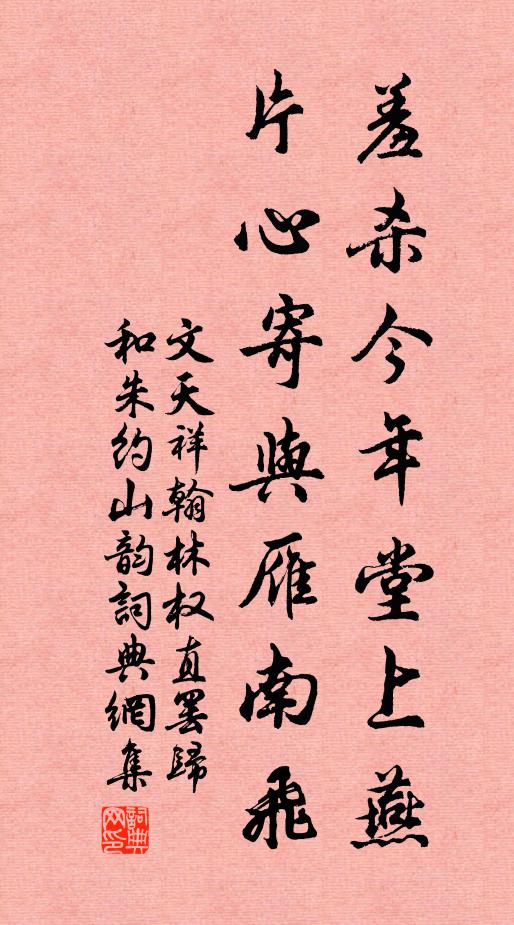 羞杀今年堂上燕
片心寄與雁南飛
文天祥翰林权直罢歸
和朱约山韵詞典網集
詞典网印